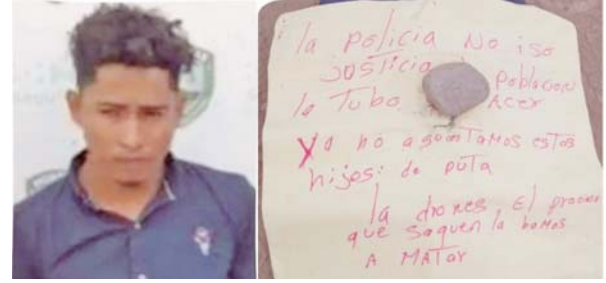 la policia No iso
JOSTicia Poblacion
la Tubo Acer
Ya no agoantamos estos
hijos: de puta
la drones El proximo
que saquen la bamos
A MATar